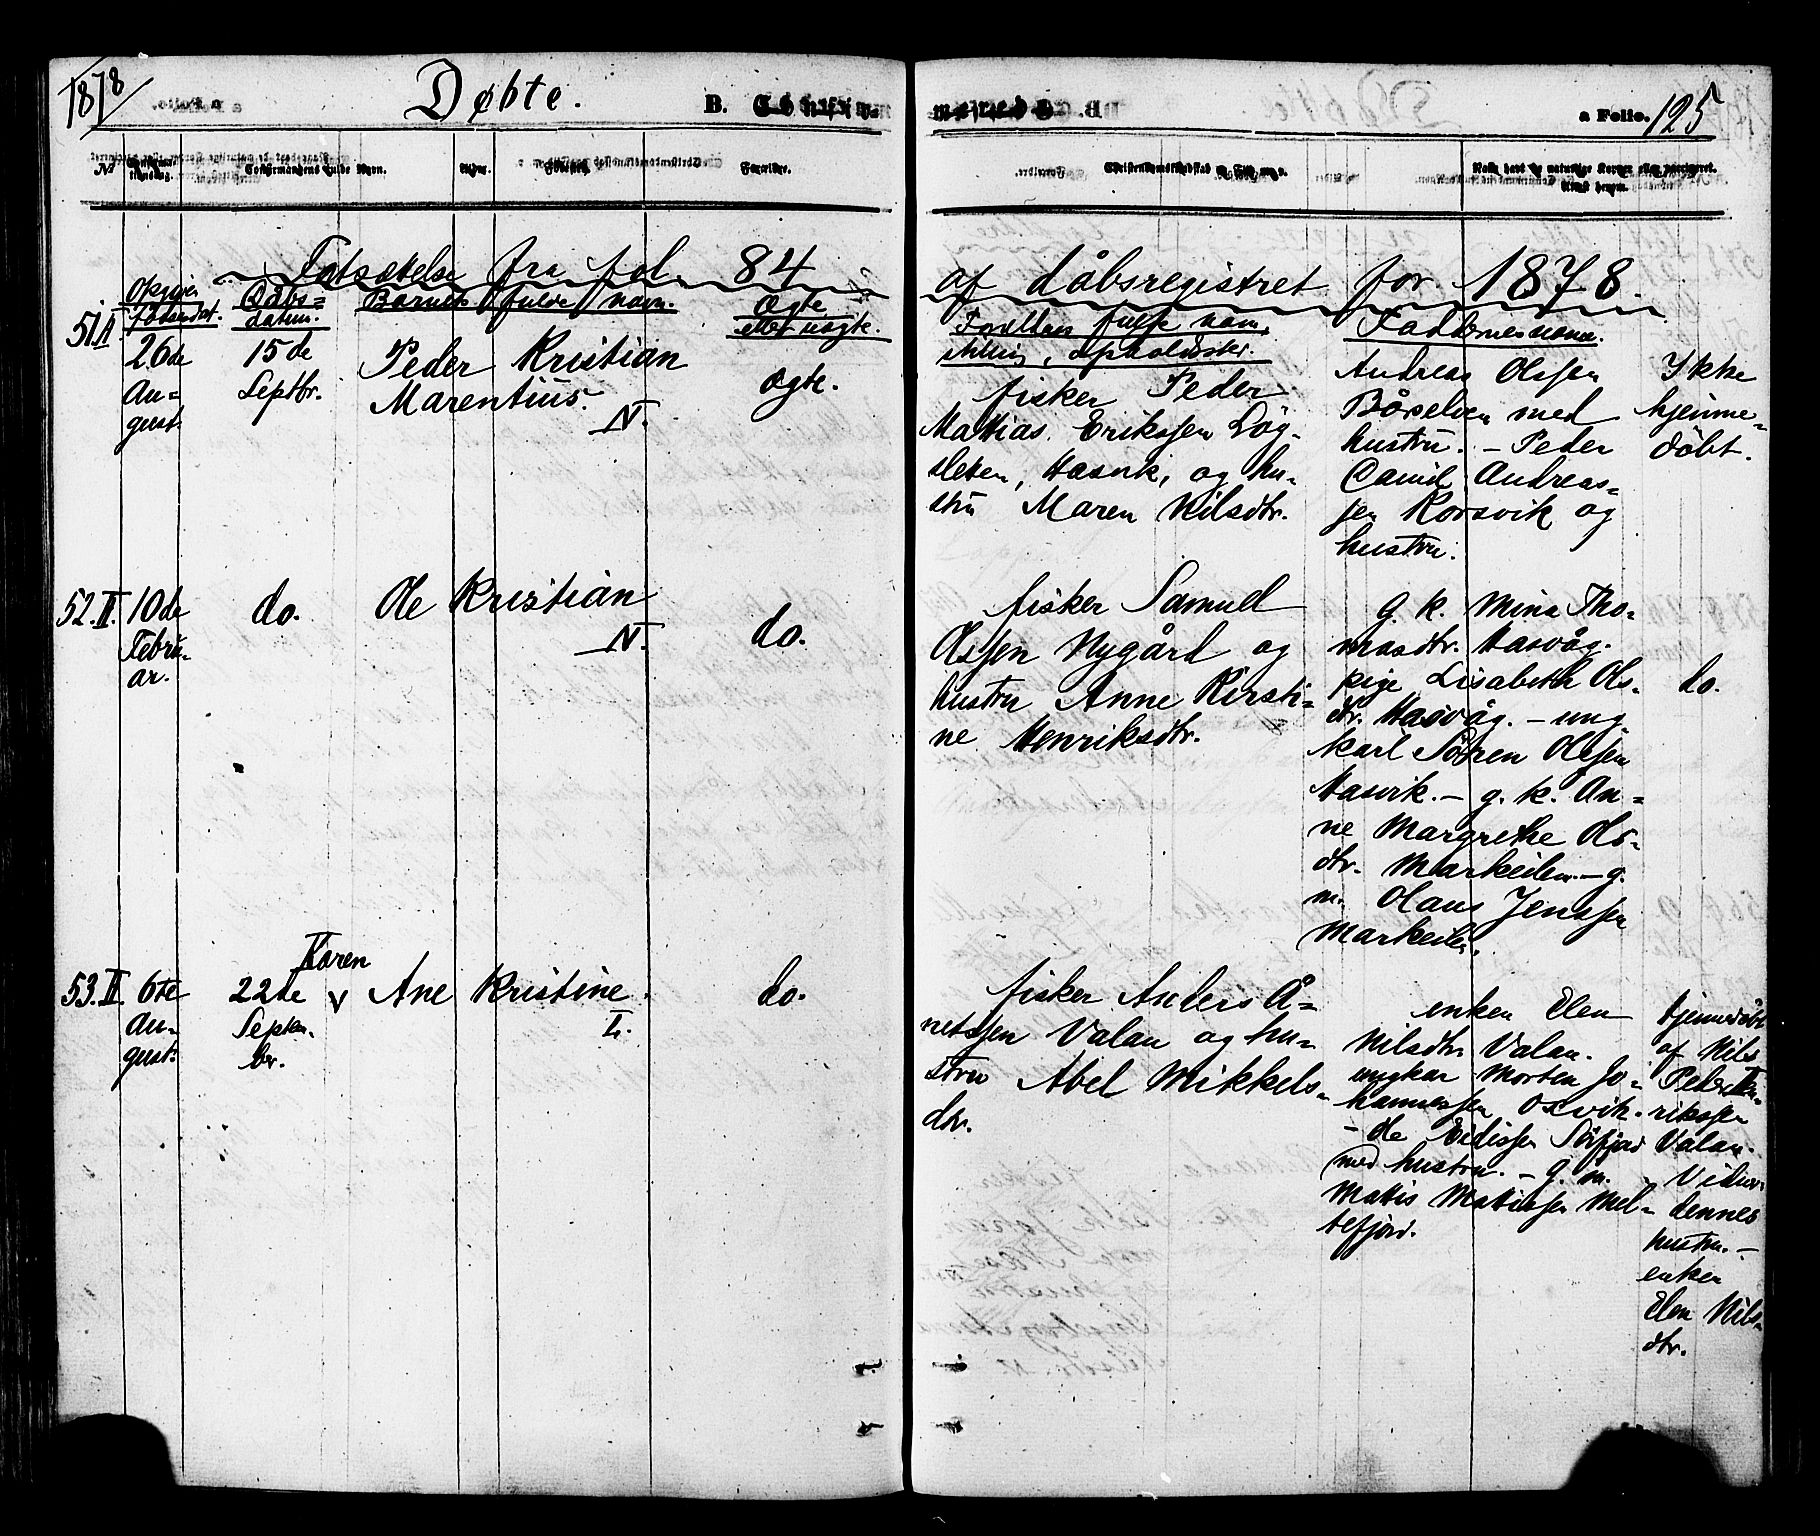 1878
Døbte.
B.
a Folio. 125
No
Confirmandens fulde Navn.
Alder.
Forældre.
Fotsættelse fra fol. 84 af dåbsregistret for 1878.
Opgiven fødselsdat.
Dåbsdatum.
Barnets fulde navn.
Ægte eller uægte.
Forældres fulde navn, stilling, opholdssted.
Faddernes navne.
51.II
26de
Au=
gust.
15de
Septbr.
Peder Kristian
Marentius.
N.
Ægte.
fisker Peder
Matias Erikssen Løg-
sletten, Hasvik, og hu-
stru Maren Nilsdtr.
Andreas Olssen
Børselven med
hustru. – Peder
Camil Andreas-
sen Korsvik og
hustru.
Ikke
hjemme-
døbt.
52.II.
10de
Febru-
ar.
do.
Ole Kristian
N.
do.
fisker Samuel
Olssen Nygård og
hustru Anne Kersti-
ne Henriksdtr.
g. k. Mina Tho-
masdtr. Hasvåg.
pige Lisabeth Ols-
dtr. Hasvåg. – ung
karl Sören Olssen
Hasvik. – g. k. An-
ne Margrethe Ols-
dtr. Markeilen. – g.
m. Olaus Jenssen
Markeilen.
do.
53.II.
6te
Au-
gust.
22de
Septem-
ber.
Karen
V Ane Kristine.
L.
do.
fisker Anders A-
netssen Valan og hu-
stru Abel Mikkels-
dtr.
enken Elen
Nilsdtr. Valan.
ungkar Morten Jo-
hannessen Oxvik.
med hustru. – g. m.
Mattis Mattissen Mel-
tefjord.
hjemmedøbt
af Nils
Peder Hen-
rikssen
Valan.
dennes
hustru. –
enken
Elen Nils-
dtr.